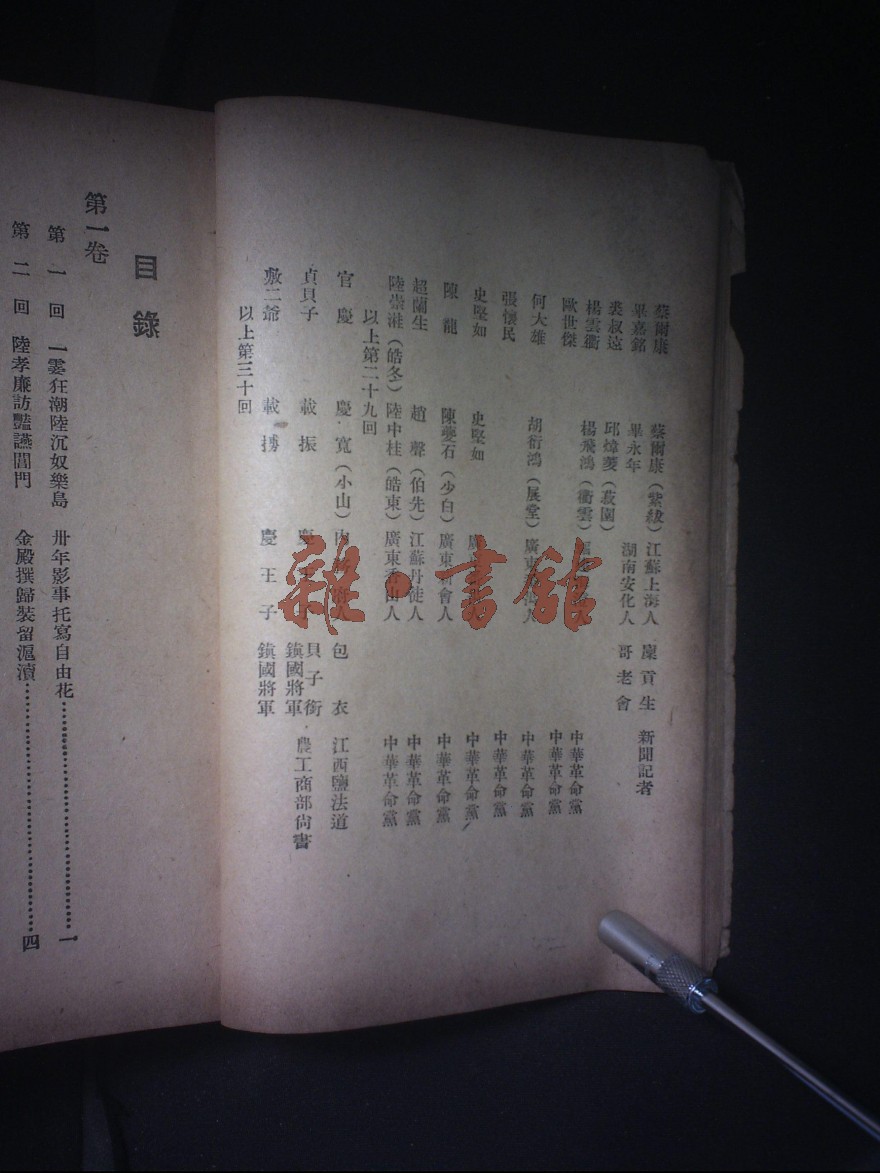 蔡爾康 蔡爾康（紫紱）江蘇上海人 廩貢生 新聞記者
畢嘉銘 畢永年 湖南安化人 哥老會
裘叔遠 邱煒萲（菽園）
楊雲衢 楊飛鴻（衢雲） 中華革命黨
歐世傑 中華革命黨
何大雄 胡衍鴻（展堂）廣東 人 中華革命黨
張懷民 中華革命黨
史堅如 史堅如 中華革命黨
陳龍 陳夔石（少白）廣東新會人 中華革命黨
超蘭生 趙聲（伯先）江蘇丹徒人 中華革命黨
陸崇溎（皓冬）陸中桂（皓東）廣東香山人 中華革命黨
以上第二十九回
官慶 慶寬（小山）內 人 包衣 江西鹽法道
貞貝子 載振 慶 貝子銜鎮國將軍 農工商部尙書
敷二爺 載搏 慶王子 鎮國將軍
以上第三十回
目錄
第一卷
第一回 一霎狂潮陸沉奴樂島 卅年影事托寫自由花……一
第二回 陸孝廉訪豔讌閶門 金殿撰歸裝留滬瀆……四
雜·書館